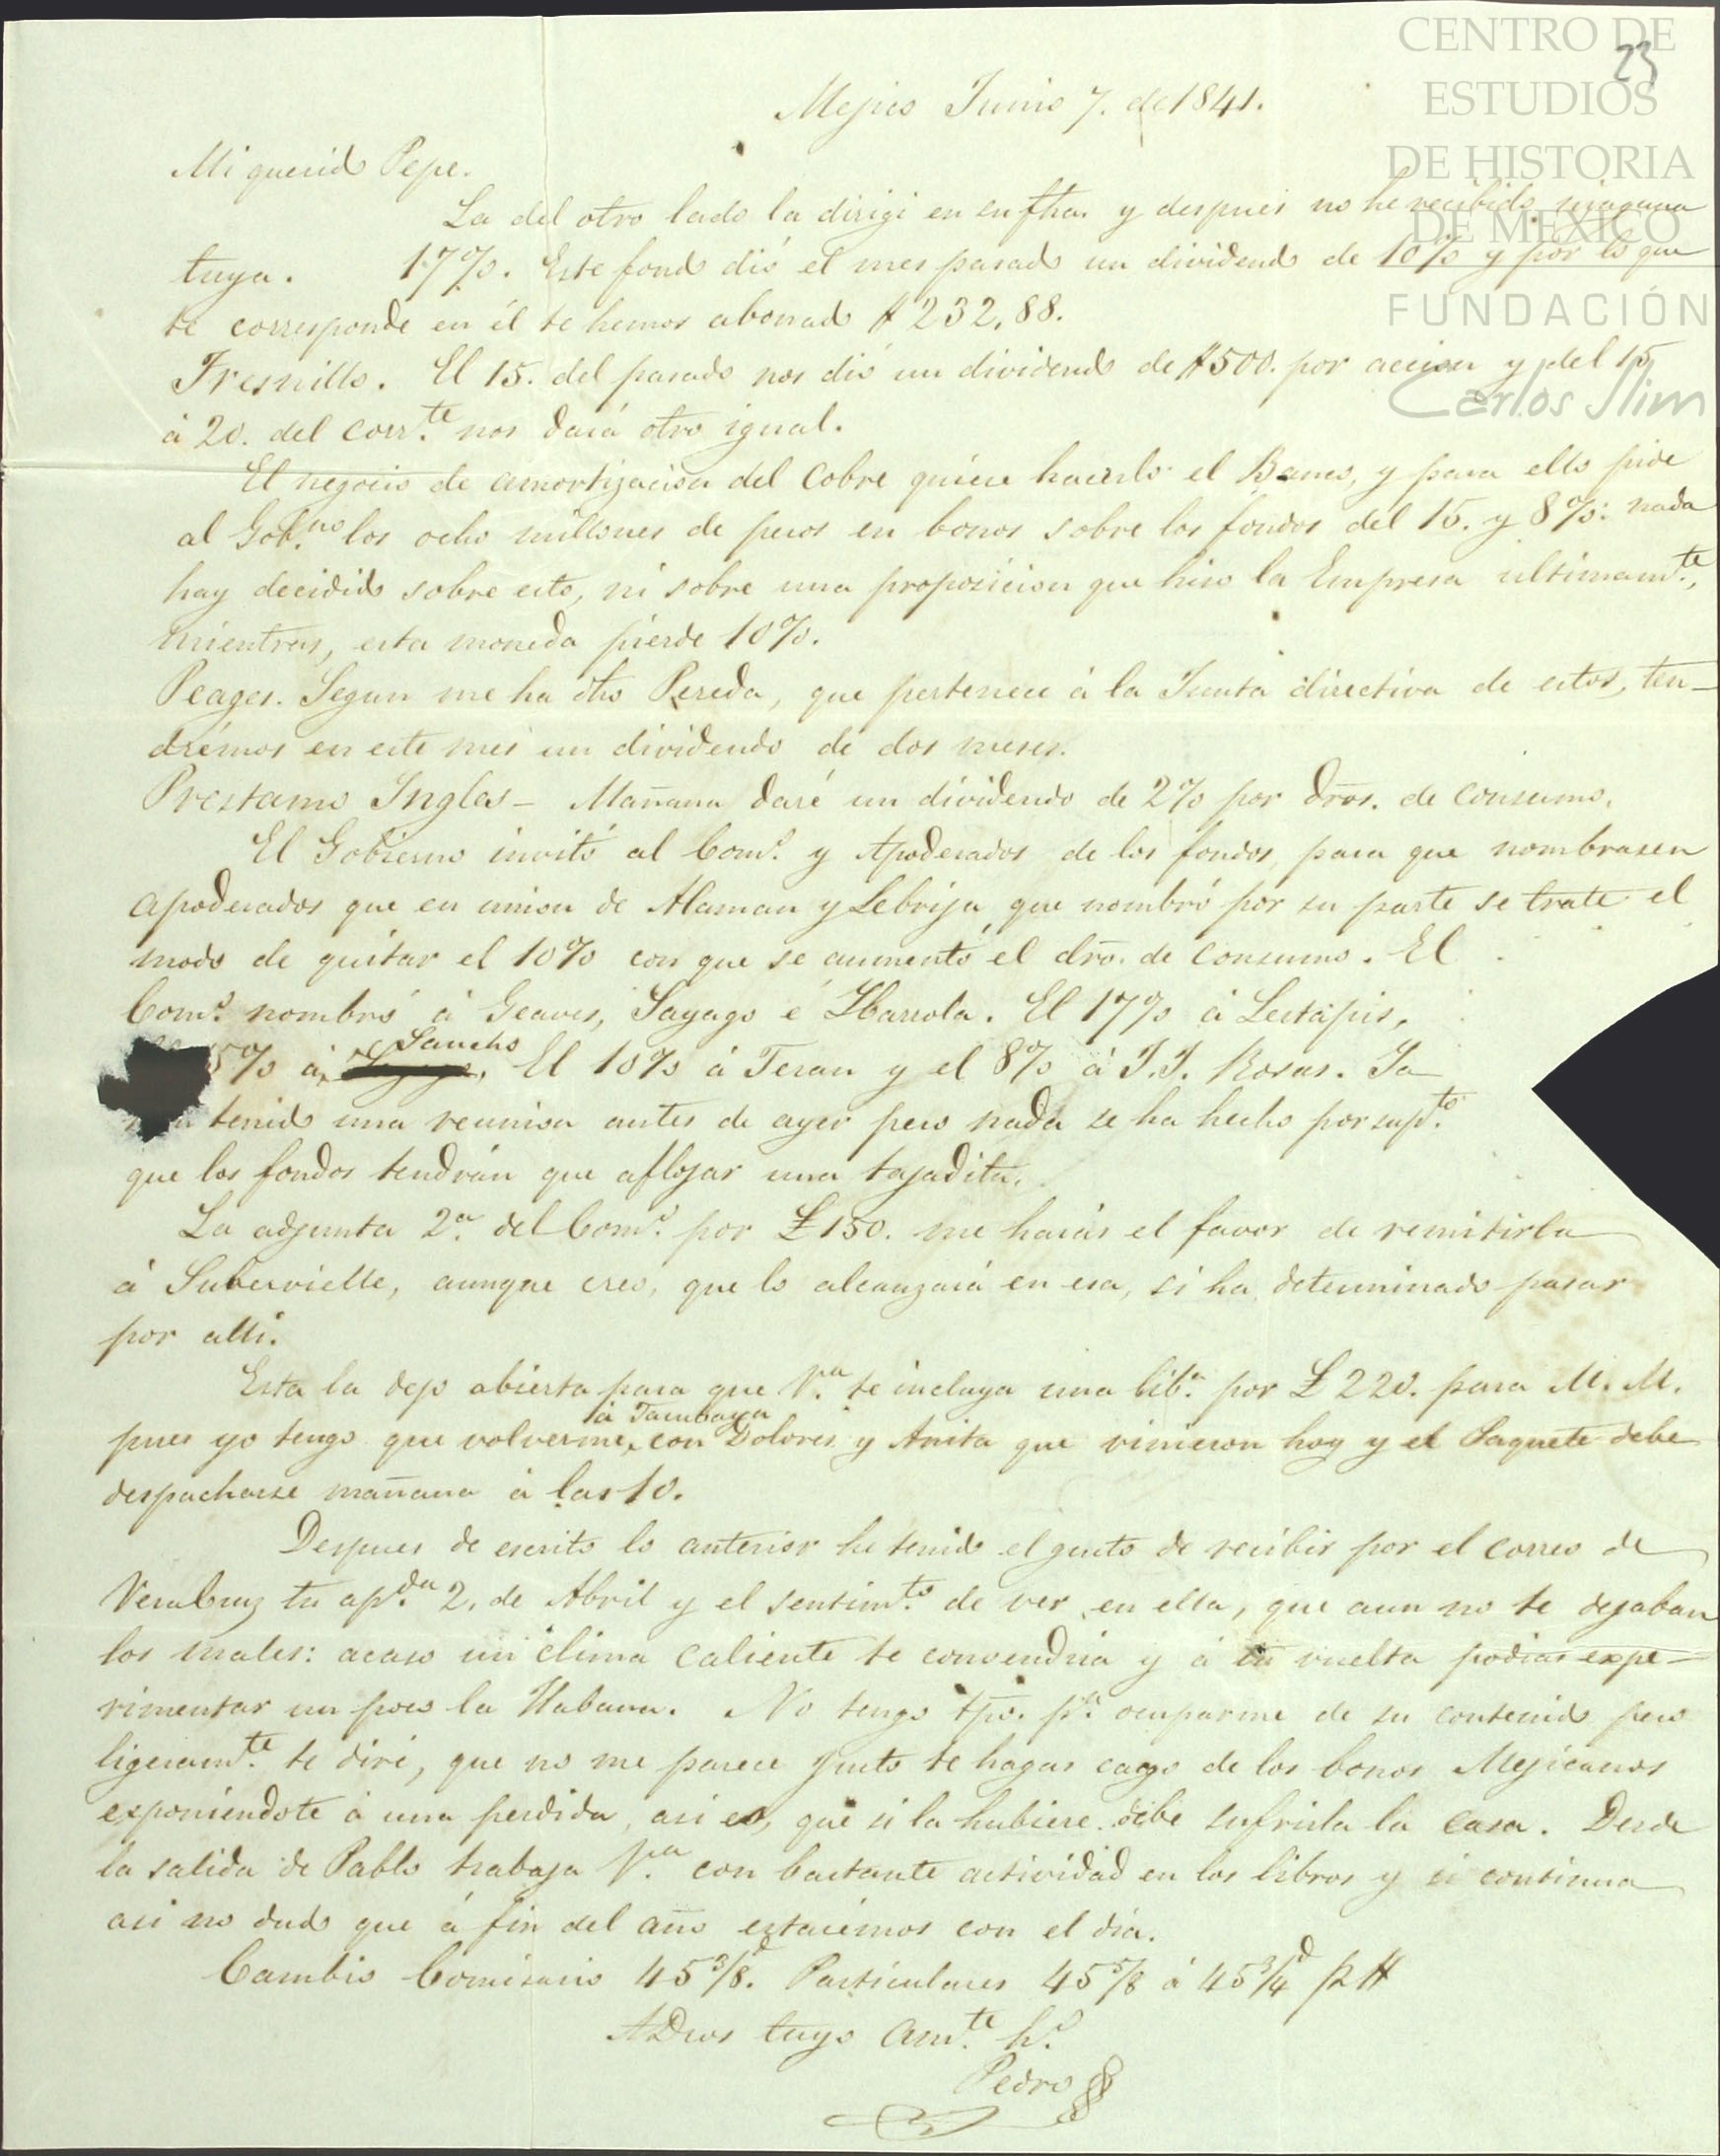 CENTRO DE
ESTUDIOS
DE HISTORIA
DE MÉXICO
FUNDACIÓN
Carlos Slim
23
Mejico Junio 7. de 1841.
Mi querido Pepe.
La del otro lado la dirigi en su fha. y despues no he recibido ninguna
tuya. 17%. Este fondo dió el mes pasado un dividendo de 10% y por lo que
te corresponde en él te hemos abonado $232,88.
Fresnillo. El 15. del pasado nos dió un dividendo de $500. por accion y del 15
á 20. del corr.te nos dará otro igual.
El negocio de amortizacion del Cobre quiere hacerlo el Banco, y para ello pide
al Gob.no los ocho millones de pesos en bonos sobre los fondos del 15. y 8%: nada
hay decidido sobre esto, ni sobre una proposicion que hizo la Empresa ultimam.te,
mientras, esta moneda pierde 10%.
Peages. Segun me ha dho Pereda, que pertenece á la Junta directiva de estos, ten-
drémos en este mes un dividendo de dos meses.
Prestamo Ingles - Mañana daré un dividendo de 2% por dros. de Consumo.
El Gobierno invitó al Com.o y Apoderados de los fondos, para que nombrasen
apoderados que en union de Alaman y Lebrija que nombró por su parte se trate el
modo de quitar el 10% con que se aumentó el dro. de Consumo. El
Com.o nombró á Geaves, Sayago é Ybarrola. El 17% á Lestapis,
5% á Sancho. El 10% á Teran y el 8% á J.J. Rosas. Ya
tenido una reunion antes de ayer pero nada se ha hecho por sup.to
que los fondos tendrán que aflojar una tajadita.
La adjunta 2.a del Com.o por £150. me harás el favor de remitirla
á Subervielle, aunque creo, que lo alcanzará en esa, si ha determinado pasar
por alli.
Esta la dejo abierta para que V.a te incluya una lib.a por £220. para M. M.
pues yo tengo que volverme á Tacubaya con Dolores y Anita que vinieron hoy y el Paquete debe
despacharse mañana á las 10.
Despues de escrito lo anterior he tenido el gusto de recibir por el correo de
VeraCruz tu ap.da 2. de Abril y el sentim.to de ver en ella, que aun no te dejaban
los males: acaso un clima caliente te convendria y á tu vuelta podias expe-
rimentar un poco la Habana. No tengo tpo. p.a ocuparme de su contenido pero
ligeram.te te diré, que no me parece justo te hagas cargo de los bonos Mejicanos
esponiendote á una perdida, asi es, que si la hubiere debe sufrirla la casa. Desde
la salida de Pablo trabaja V.a con bastante actividad en los libros y si continua
asi no dudo que á fin del año estarémos con el dia.
Cambio Comisario 45 3/8. Particulares 45 5/8 á 45 3/4 d p $
A Dios tuyo am.te h.o
Pedro